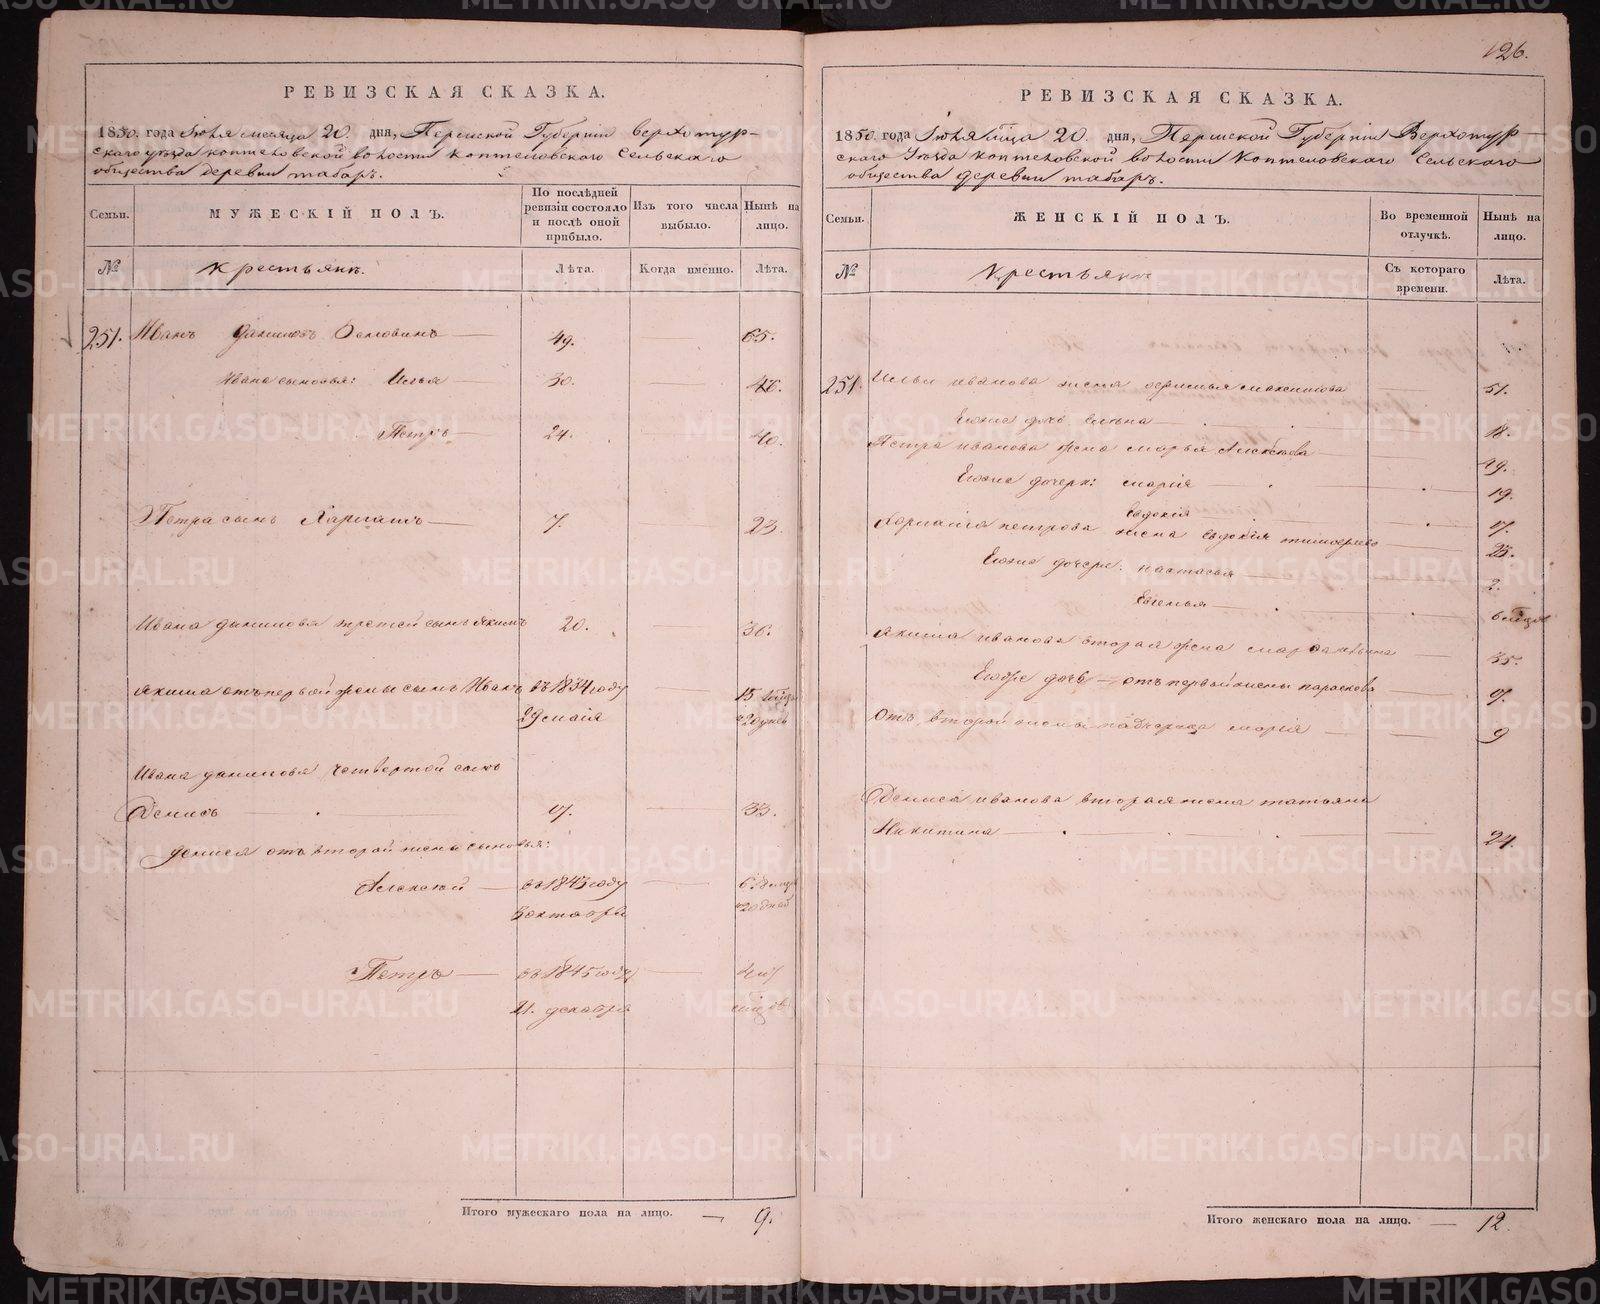 126.
РЕВИЗСКАЯ СКАЗКА.
1850. года Июля месяца 20. дня, Пермской Губернии верхотур-
скаго уезда коптеловской волости коптеловскаго Сельскаго
общества деревни табаръ.
Семьи. МУЖЕСКІЙ ПОЛЪ. По послѣдней ревизіи состояло и послѣ оной прибыло. Изъ того числа выбыло. Нынѣ на лицо.
№ Крестьянъ. Лѣта. Когда именно. Лѣта.
251. Иванъ Даниловъ 49. 65.
Ивана сыновья: Илья 30. 46.
Петръ 24. 40.
Петра сынъ 7. 23.
Ивана данилова третей сынъ Якимъ 20. 36.
Якима отъ первой жены сынъ Иванъ въ 1834 году 15
29 маія 20 дней
Ивана данилова четвертой сынъ
Денисъ 17. 33.
Дениса отъ второй жены сыновья:
Алексей въ 1843 году 6.
октября 20 дней
Петръ въ 1845 году 4
21. декабря
Итого мужескаго пола на лицо. — 9.
РЕВИЗСКАЯ СКАЗКА.
1850 года Июля мца 20 дня, Пермской Губерніи Верхотур-
скаго Уезда коптеловской волости Коптеловскаго Сельскаго
общества деревни табаръ.
Семьи. ЖЕНСКІЙ ПОЛЪ. Во временной отлучкѣ. Нынѣ на лицо.
№ Крестьянъ Съ котораго времени. Лѣта.
251. Ильи иванова жена максимова 51.
Ихже дочь Елена 18.
Петра иванова жена марья 49.
Ихже дочери: марія 19.
Евдокія 17.
петрова жена Евдокія тимофеева 23.
Ихже дочери: настасья 2.
Евгенья 6 мцов
Якима иванова вторая жена 35.
дочь отъ первой жены парасковья 17.
Отъ второй жены падчерица марія 9
Дениса иванова вторая жена татьяна
Никитина 24.
Итого женскаго пола на лицо. — 12.
METRIKI.GASO-URAL.RU